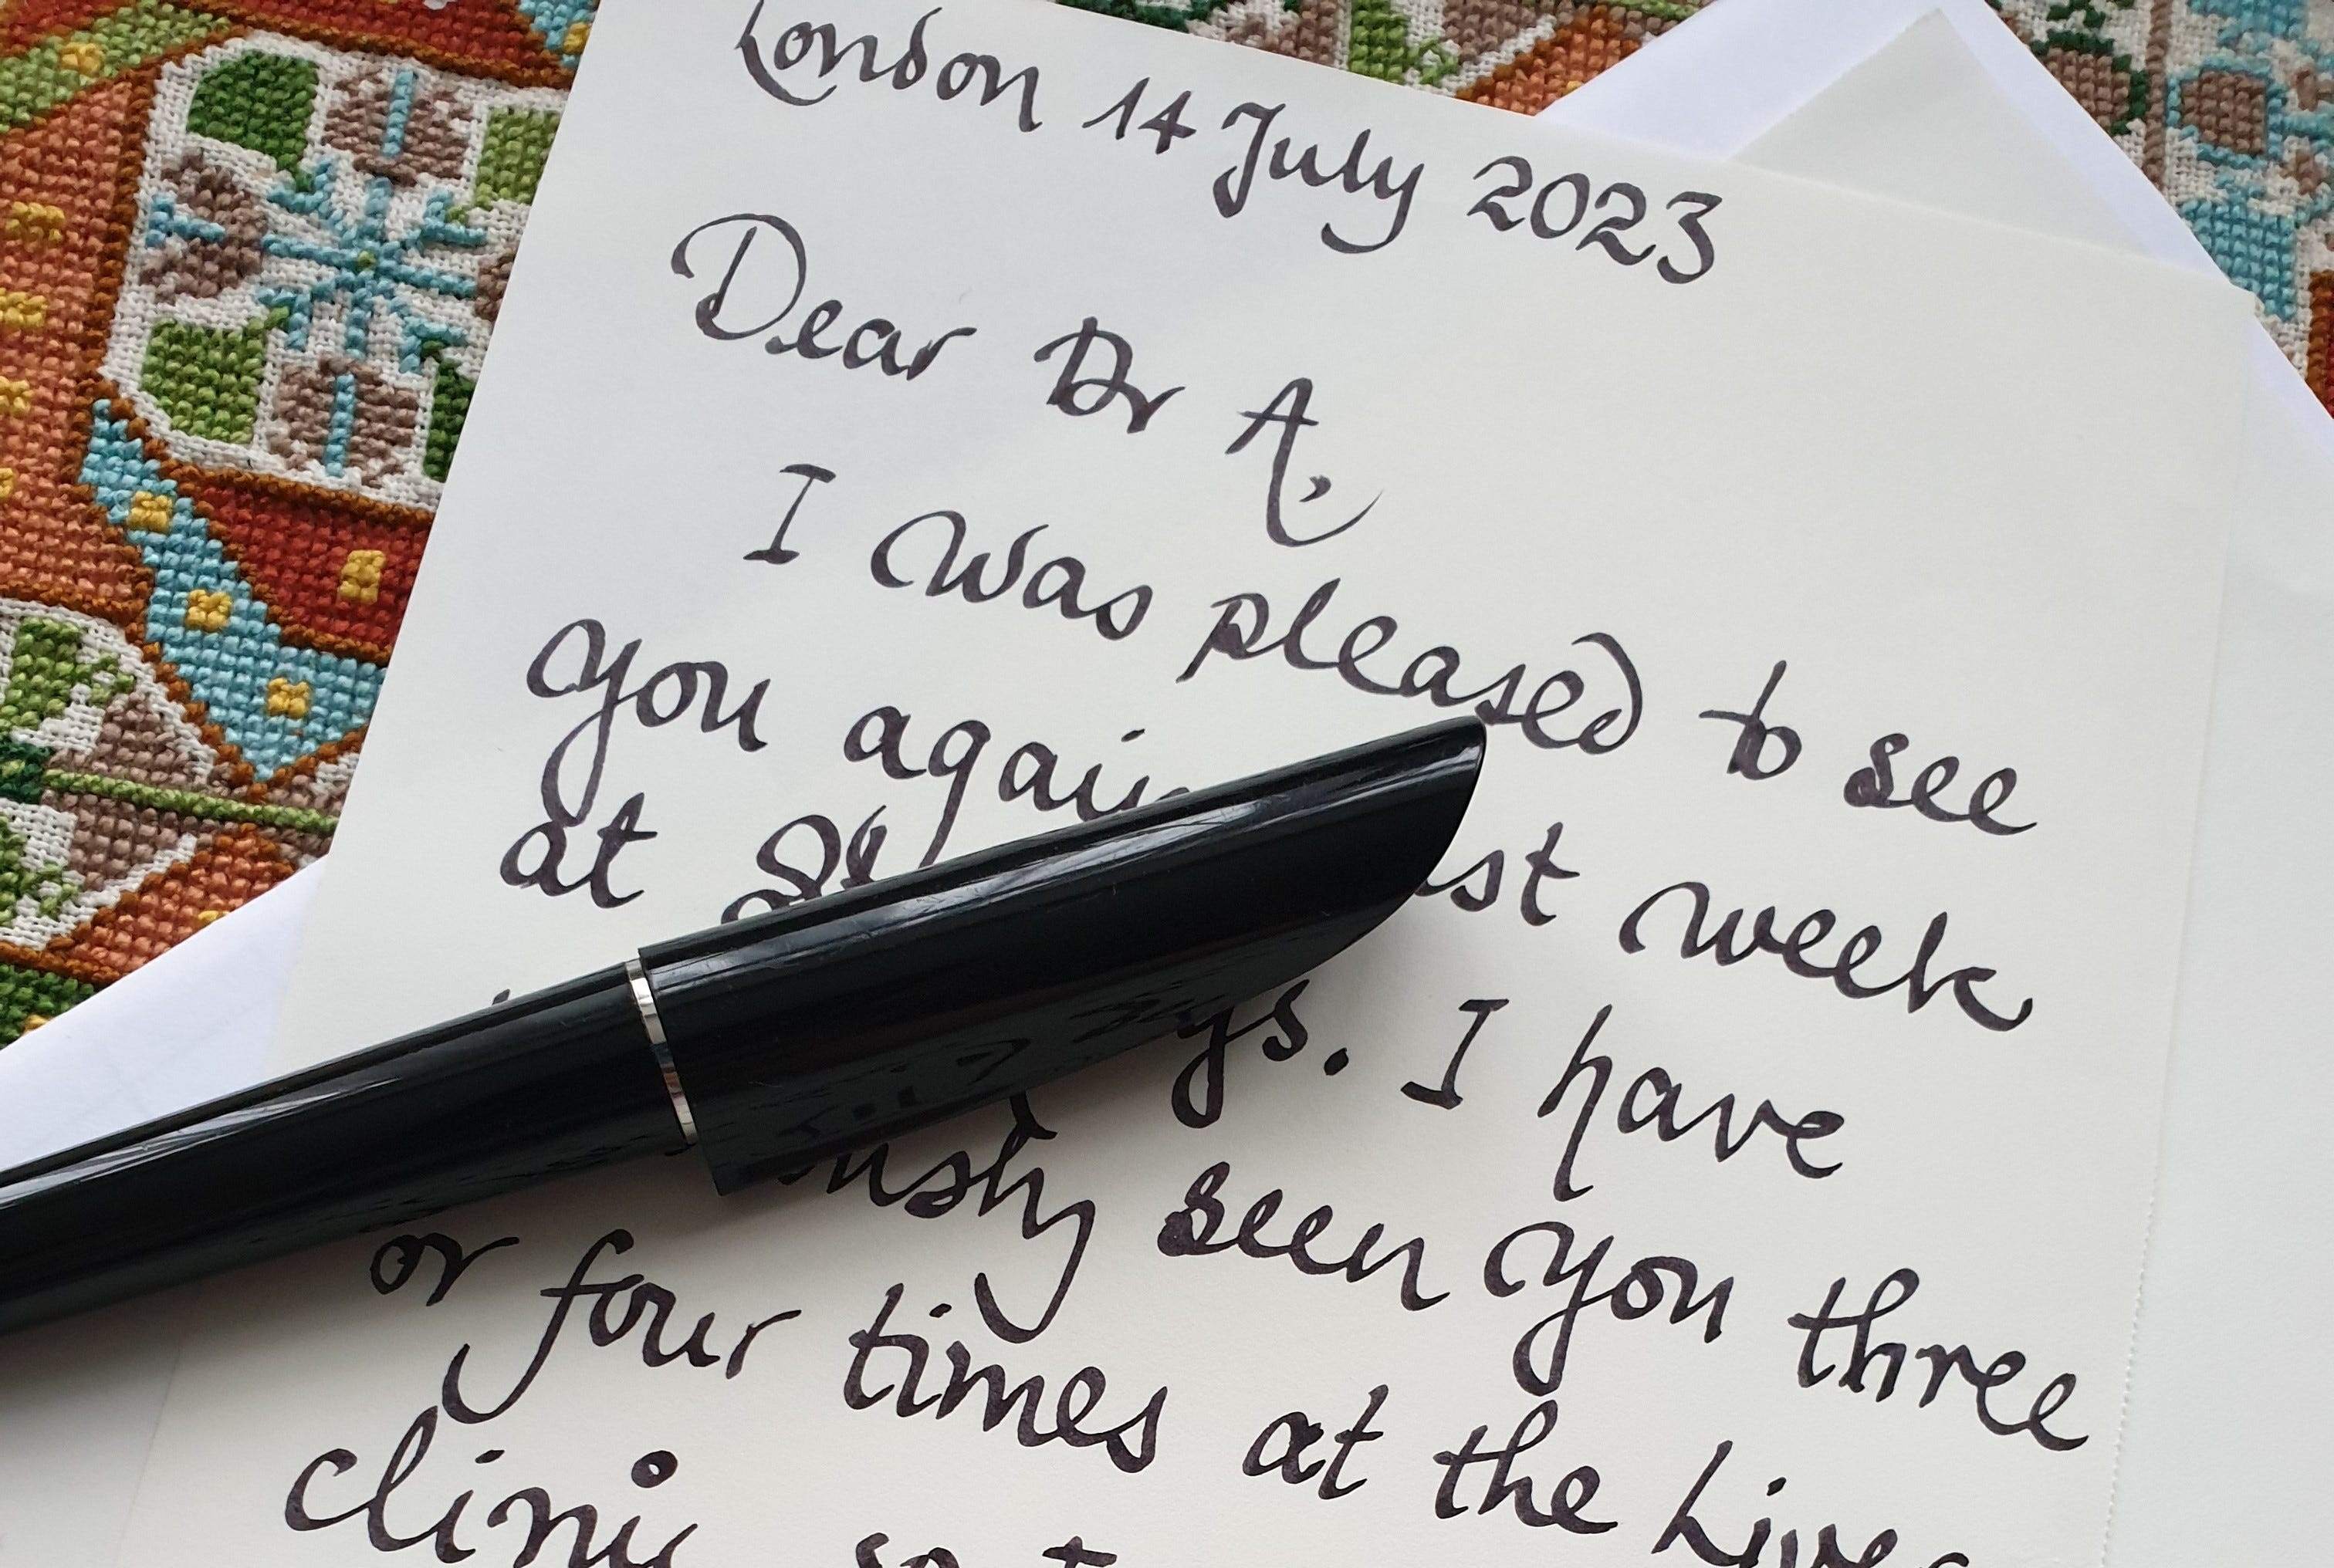 London 14 July 2023
Dear Dr A.
I was pleased to see
you again
at week
I have
seen you three
or four times at the
clinic